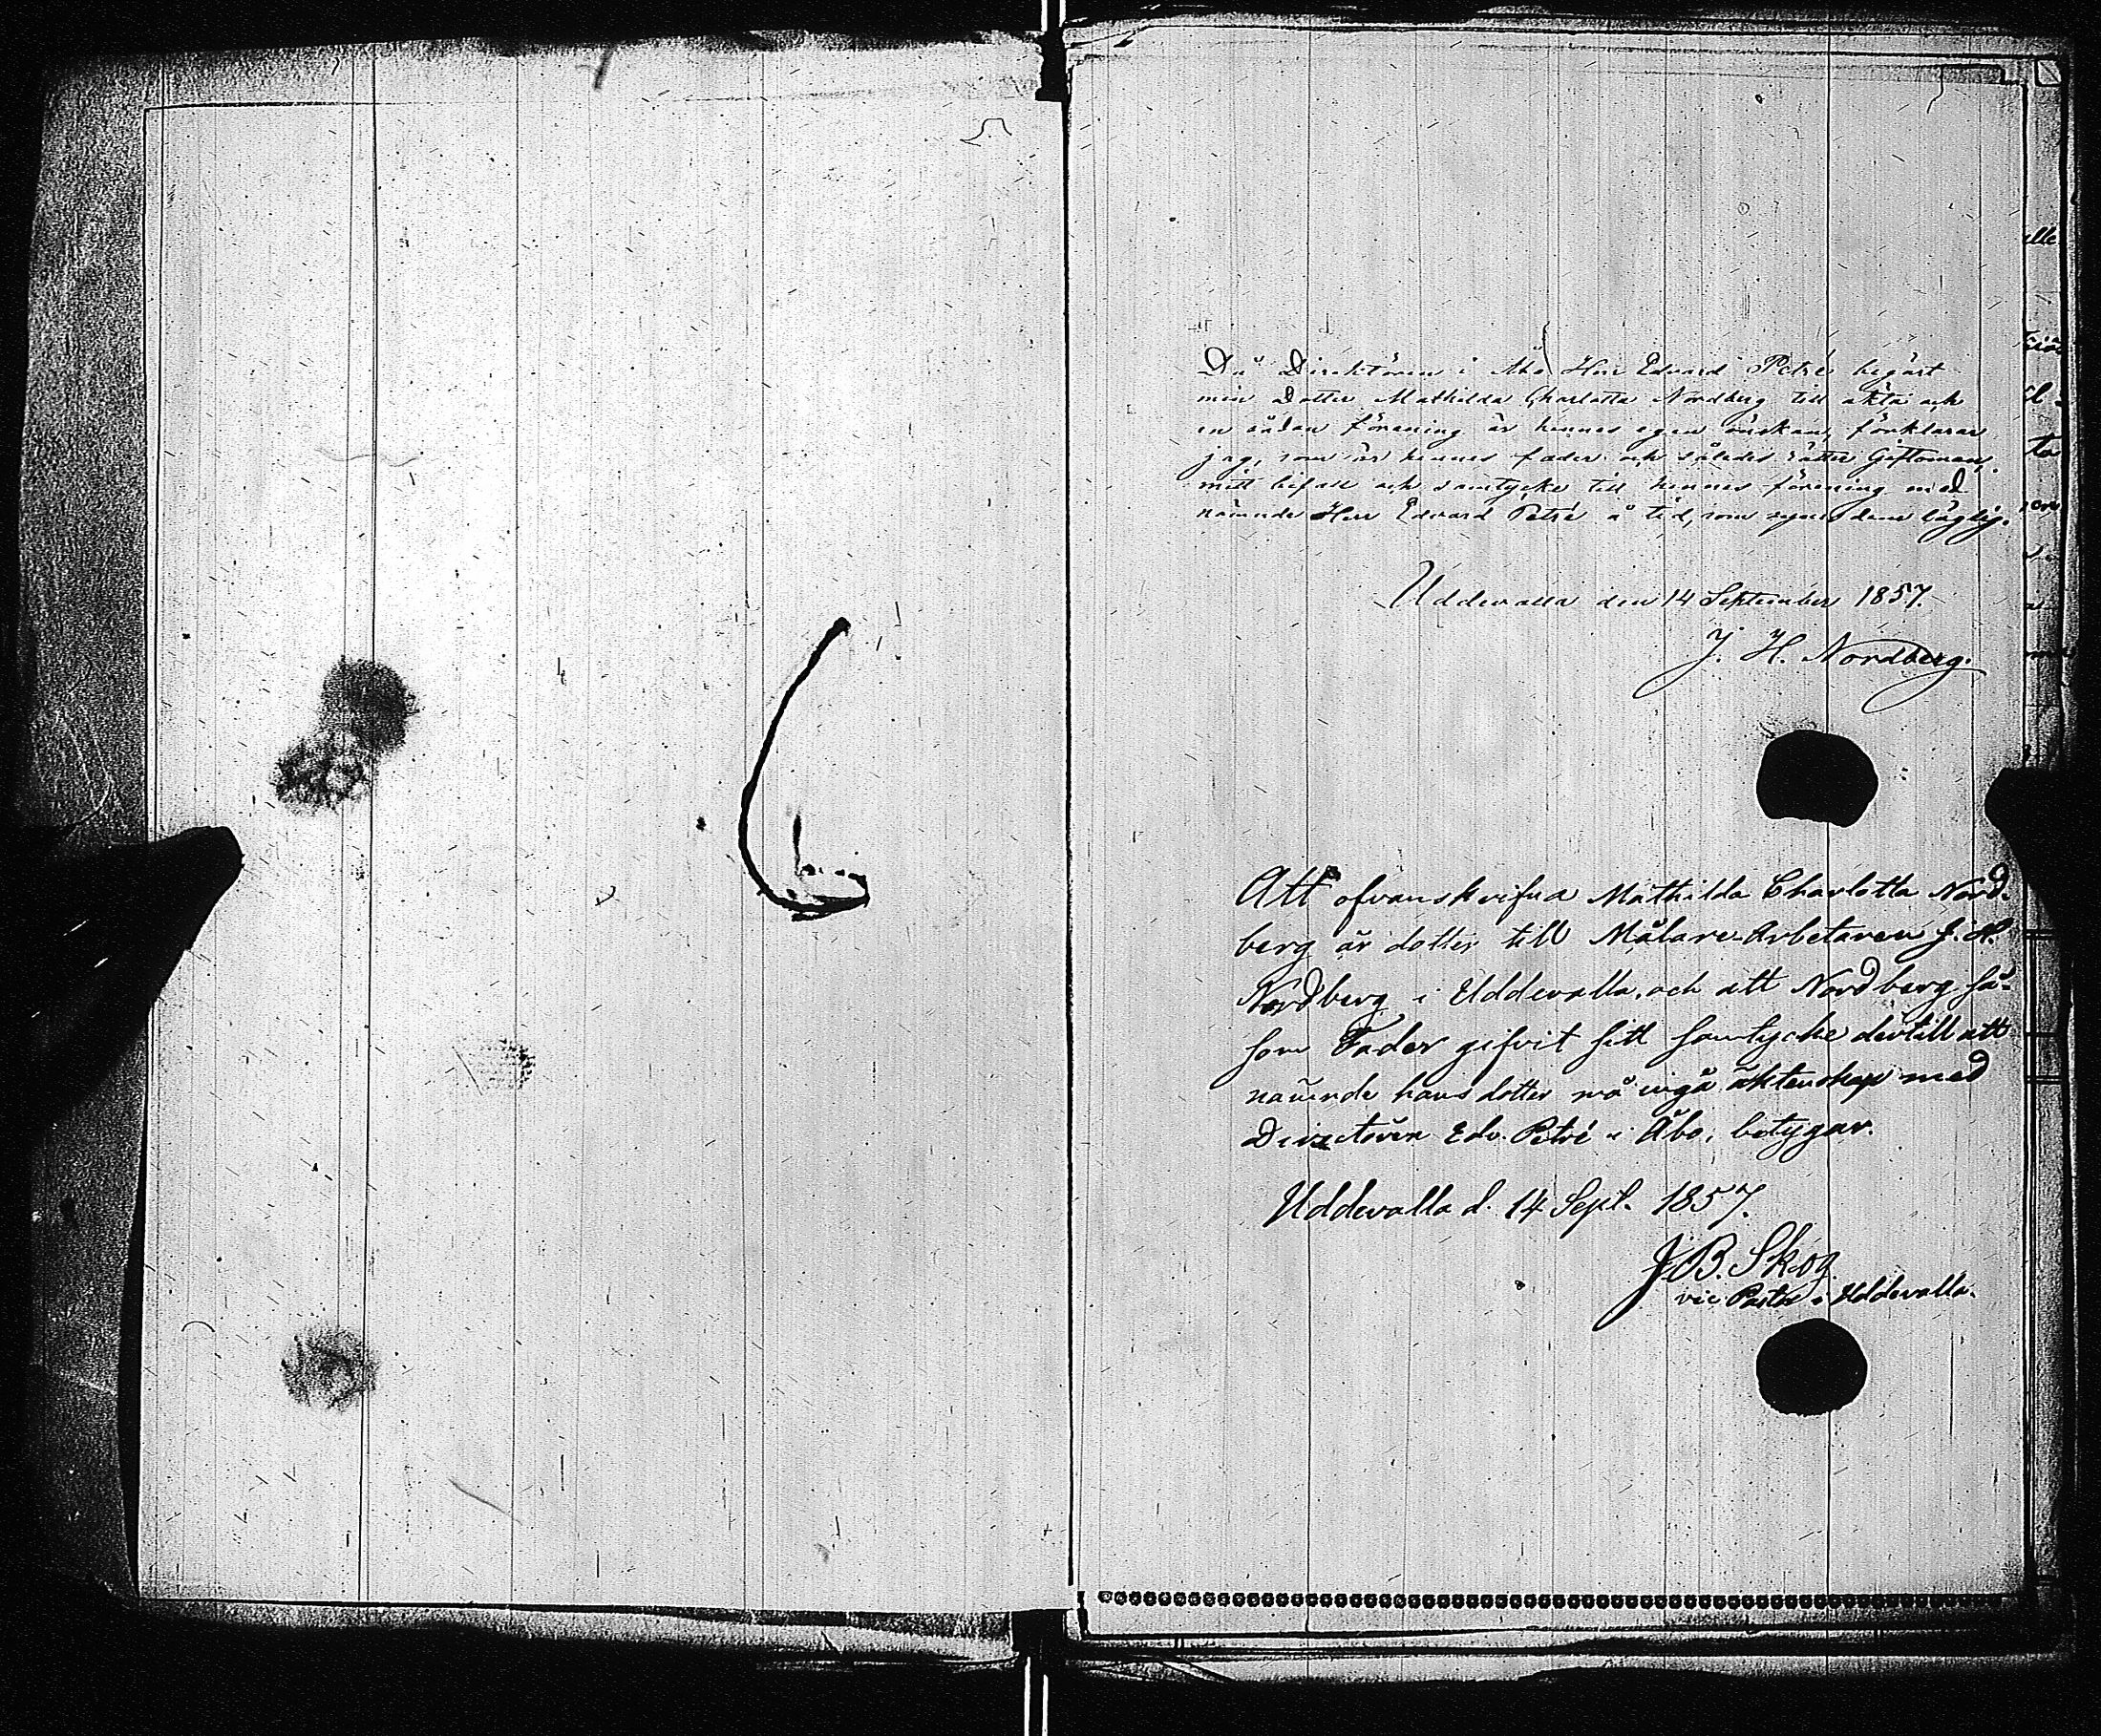 Då Direktören i Åbo Herr Edvard Petré begärt
min Dotter Mathilda Charlotta Nordberg till äkta och
en sådan förening är hennes egen önskan, förklarar
jag, som är hennes fader och således rätter Giftoman,
mitt bifall och samtycke till hennes förening med
nämnde Herr Edvard Petré å tid, som synes dem läglig.
Uddevalla den 14 September 1857.
J. H. Nordberg.
Att ofvanskrifna Mathilda Charlotta Nord-
berg är dotter till Målare-Arbetaren J. H.
Nordberg i Uddevalla, och att Nordberg så-
som Fader gifvit sitt samtycke dertill att
nämnde hans dotter må ingå äktenskap med
Directören Edv. Petré i Åbo, betygar.
Uddevalla d. 14 Sept. 1857.
J. B. Skog
vic. Pastor i Uddevalla.